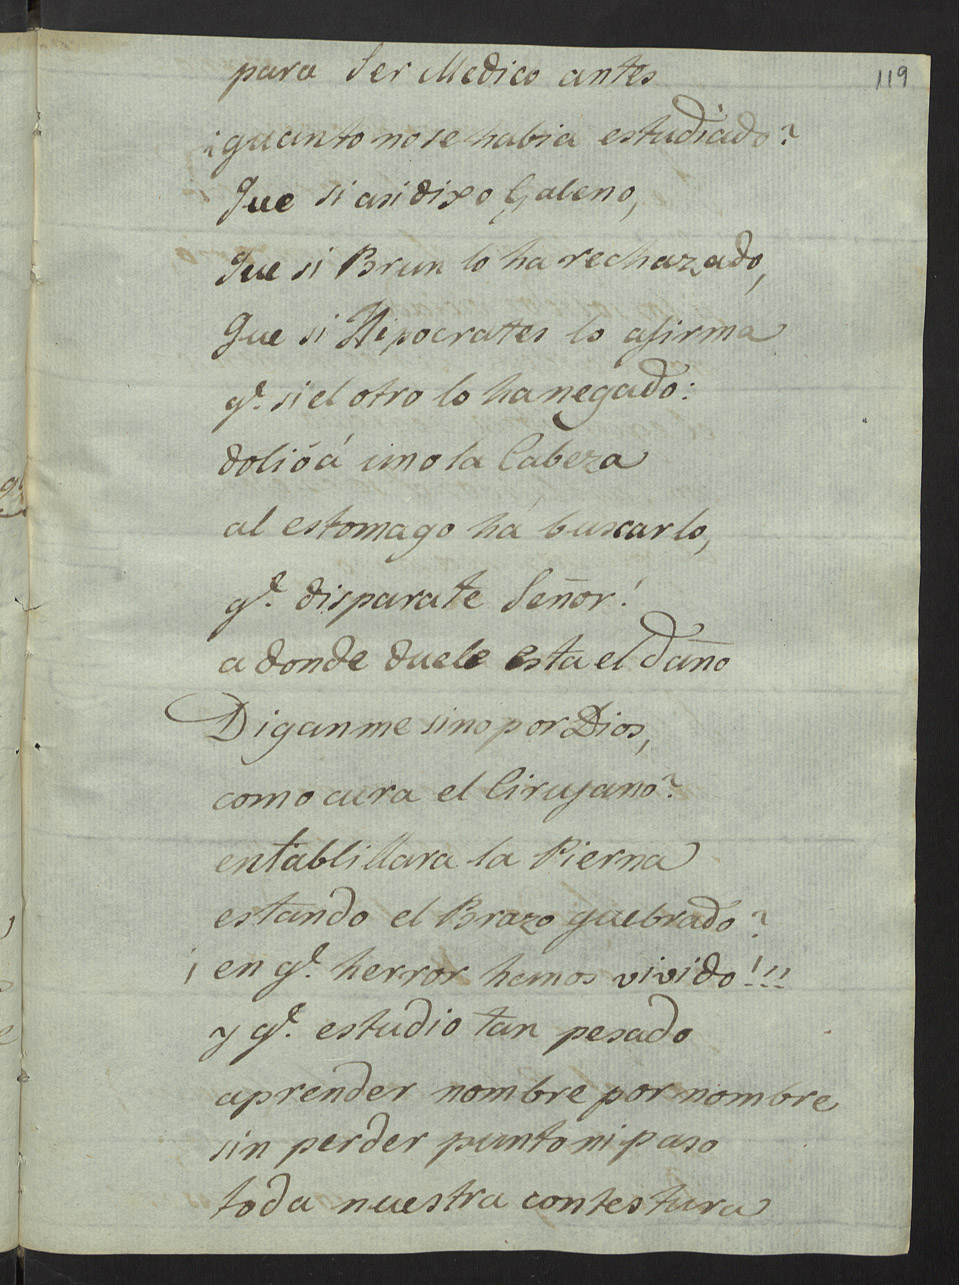 119
para Ser Medico antes
¿quanto no se habia estudiado?
Que si asi dixo Galeno,
Que si Brun lo ha rechazado,
Que si Hipocrates lo afirma
qe. si el otro lo ha negado:
dolió á uno la Cabeza
al estomago há buscarlo,
qe. disparate Señor!
a donde duele esta el daño
Diganme sino por Dios,
como cura el Cirujano?
entablillara la Pierna
estando el Brazo quebrado?
¡en qe. herror hemos vivido!!!
y qe. estudio tan pesado
aprender nombre por nombre
sin perder punto ni paso
toda nuestra contestura